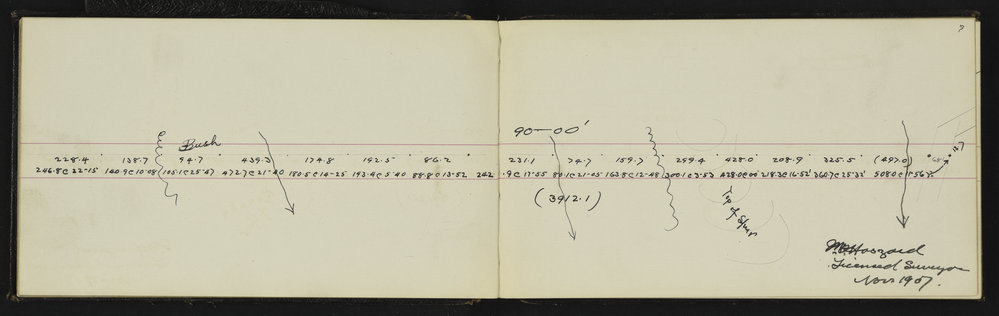 Bush
228.4 138.7 94.7 439.3 174.8 192.5 86.2
246.8@22-15 140.9@10-08 105.1@25-47 472.7@21-40 180.5@14-25 193.4@5-40 88.80 13-52 242
?
90—00'
231.1 74.7 159.7 299.4 428.0 208.9 325.5 (497.0)
.9@17-55 80.1@21-05 163.8@12-48 300.1@3-53 428.0@00' 218.3@16-52' 360.7@25-32' 508.0@
(3912.1)
Top of Spur
Hoszard
Licensed Surveyor
Nov 1907.